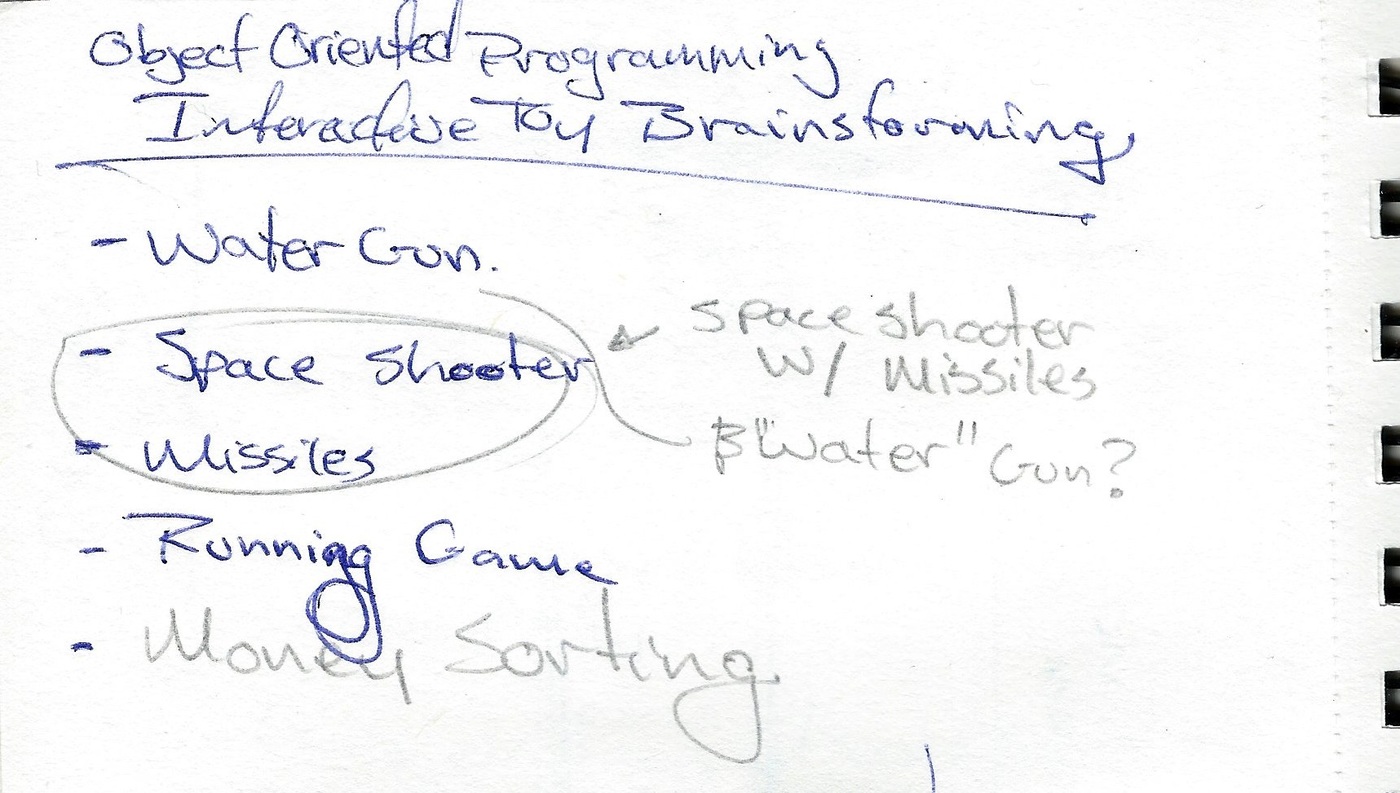 Object Oriented Programming
Interactive Toy Brainstorming
- Water Gun.
- Space Shooter
- Missiles
- Running Game
- Money Sorting
Space shooter
W/ Missiles
"Water" Gun?